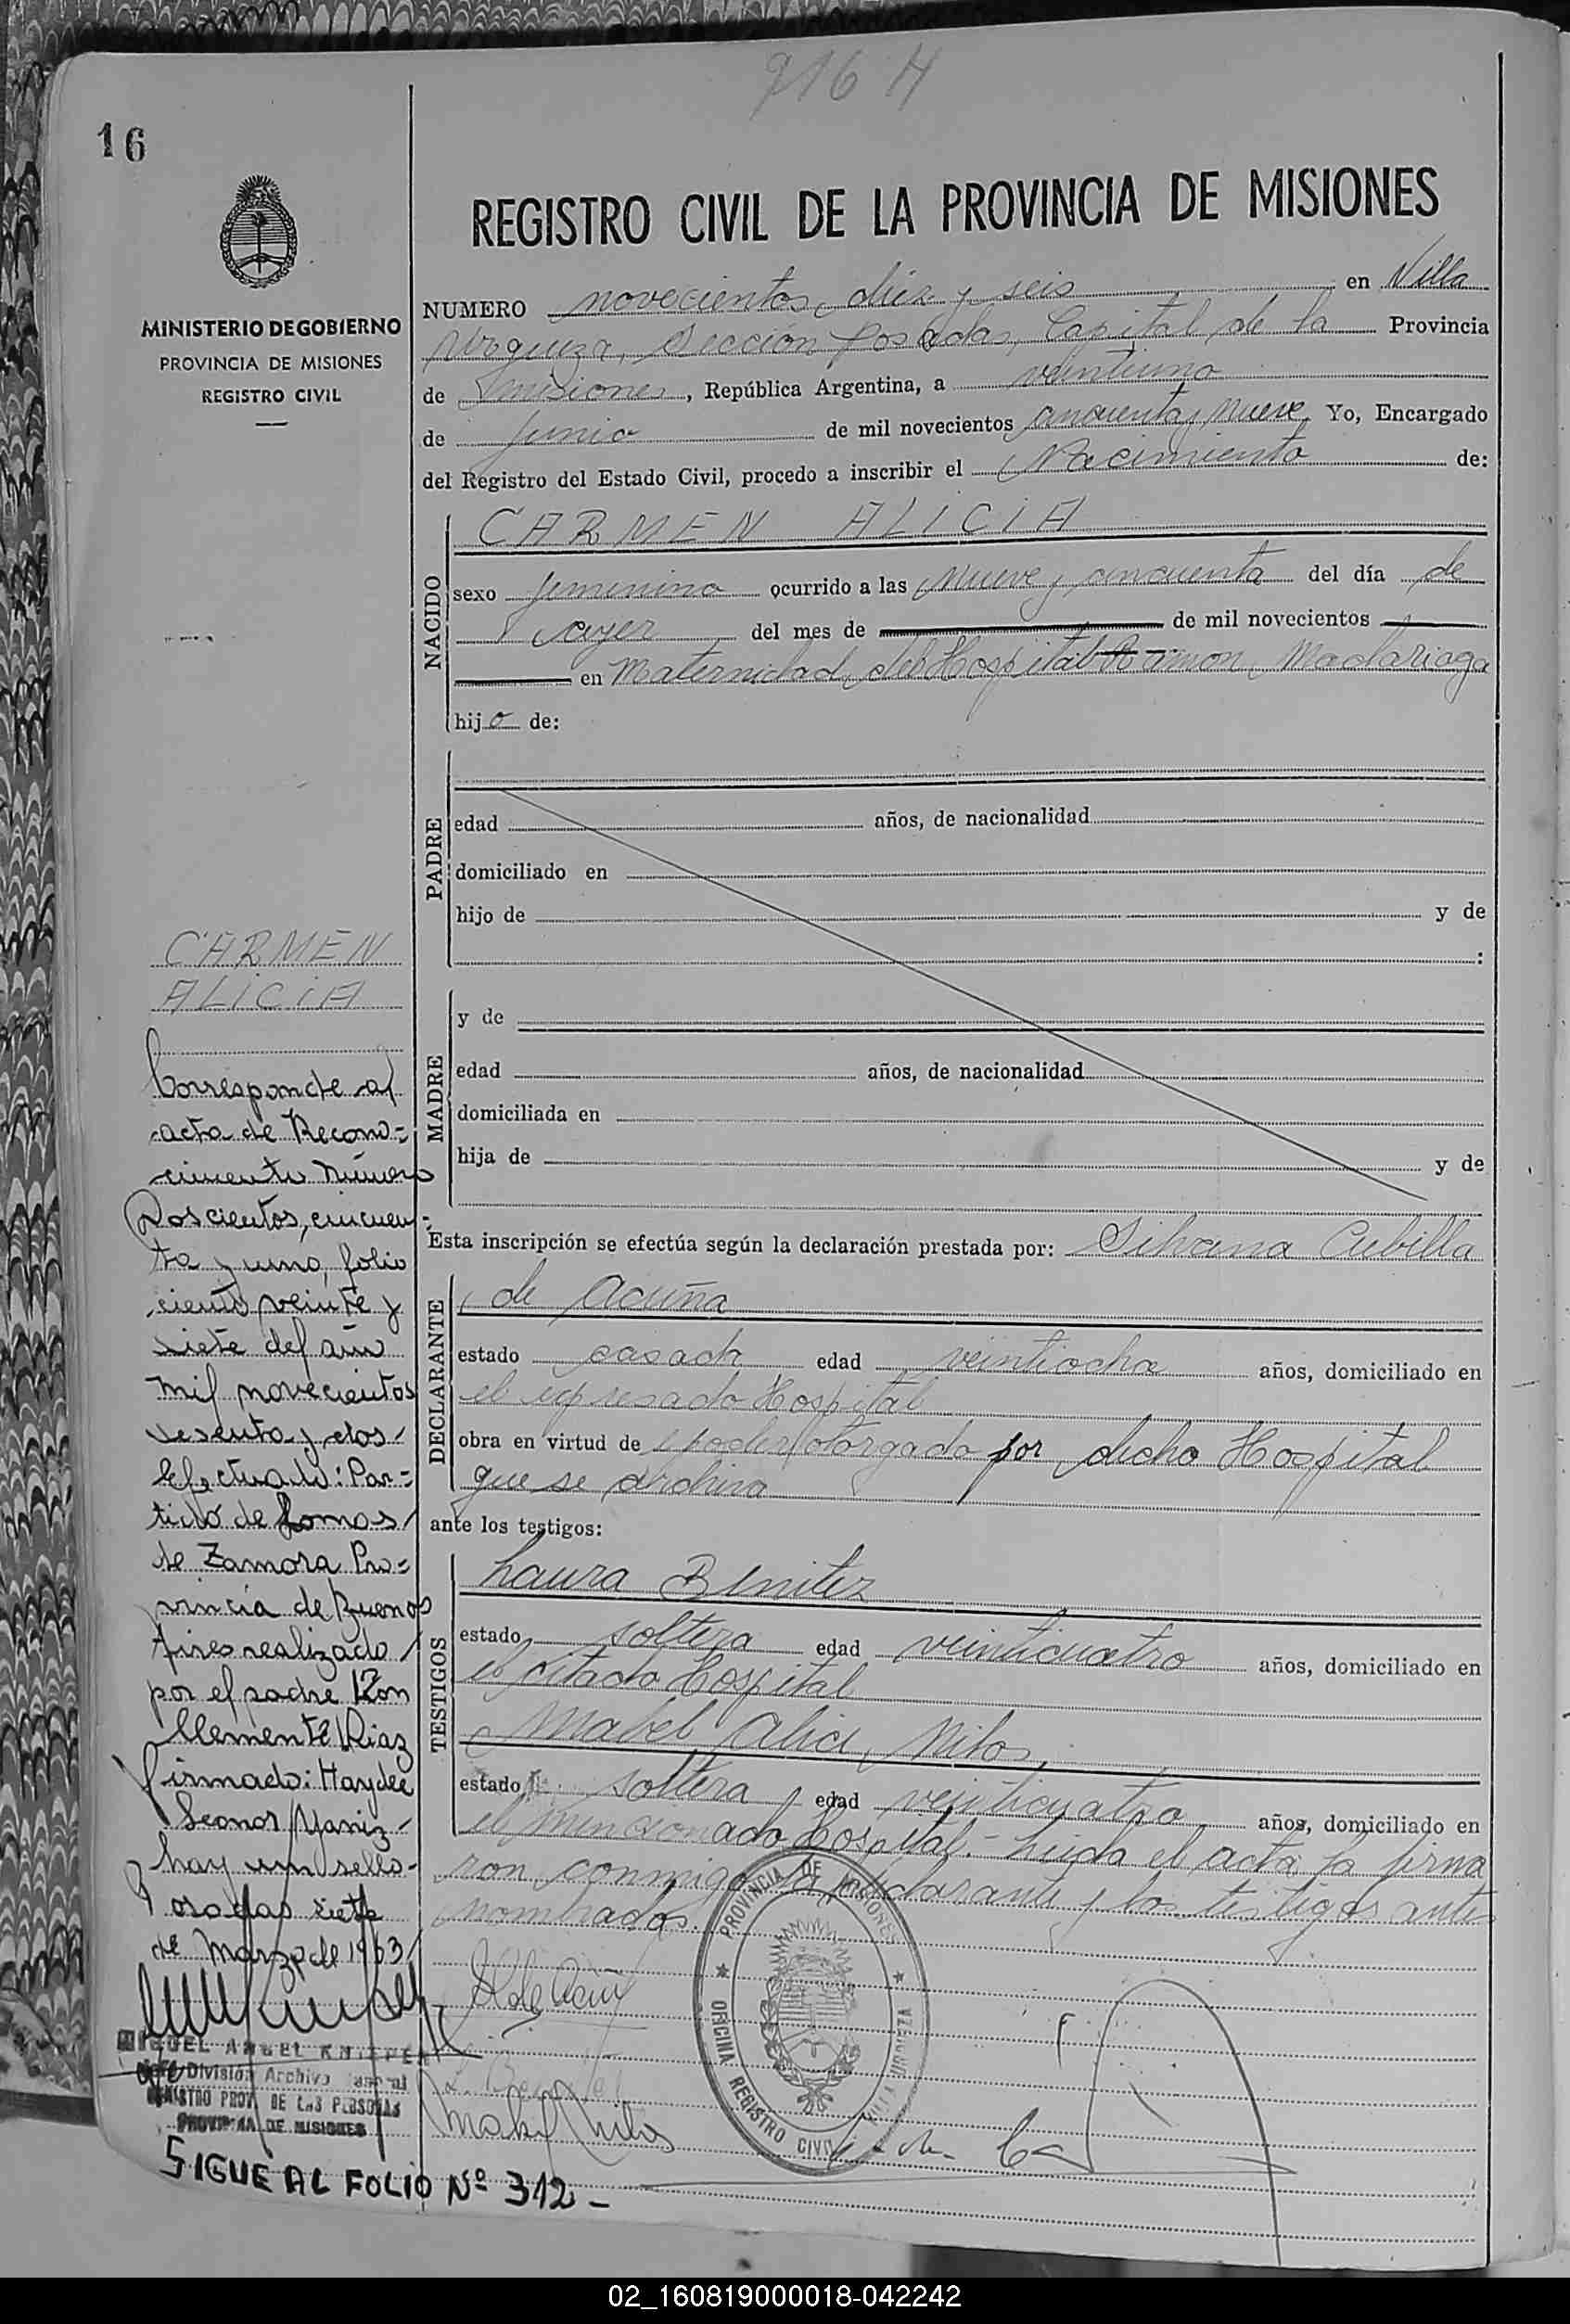 916 H
16
REGISTRO CIVIL DE LA PROVINCIA DE MISIONES
MINISTERIO DE GOBIERNO
PROVINCIA DE MISIONES
REGISTRO CIVIL
NUMERO novecientos diez y seis en Villa
Urquiza, Sección Posadas, Capital de la Provincia
de Misiones, República Argentina, a veintiuno
de Junio de mil novecientos cincuenta y nueve Yo, Encargado
del Registro del Estado Civil, procedo a inscribir el Nacimiento de:
NACIDO
CARMEN ALICIA
sexo femenino ocurrido a las nueve y cincuenta del día de
ayer del mes de de mil novecientos
en Maternidad del Hospital Ramon Madariaga
hijo de:
PADRE
edad años, de nacionalidad
domiciliado en
hijo de y de
:
MADRE
y de
edad años, de nacionalidad
domiciliada en
hija de y de
Esta inscripción se efectúa según la declaración prestada por: Silvana Cubilla
DECLARANTE
de Acuña
estado casada edad veintiocho años, domiciliado en
el expresado Hospital
obra en virtud de poder otorgado por dicho Hospital
que se archiva
ante los testigos:
TESTIGOS
Laura Benitez
estado soltera edad veinticuatro años, domiciliado en
el citado Hospital
Mabel Alice Milos
estado soltera edad veinticuatro años, domiciliado en
el mencionado Hospital.- Leida el acta la firma
ron conmigo la declarante y los testigos antes
nombrados.
CARMEN
ALICIA
Corresponde al
acta de Recono=
cimiento número
Doscientos, cincuen-
ta y uno, folio
ciento veinte y
siete del año
mil novecientos
sesenta y dos/
Efectuado: Par=
tido de Lomas/
de Zamora Pro=
vincia de Buenos
Aires realizado/
por el padre Don
Clemente Diaz
firmado: Haydee
Leonor Yaniz-
hay un sello-
Posadas siete
de Marzo de 1963/
MIGUEL ANGEL
Jefe División Archivo General
REGISTRO PROV. DE LAS PERSONAS
PROVINCIA DE MISIONES
PROVINCIA DE MISIONES
OFICINA REGISTRO CIVIL
VILLA URQUIZA
Mabel Milos
SIGUE AL FOLIO Nº 312-
02_160819000018-042242